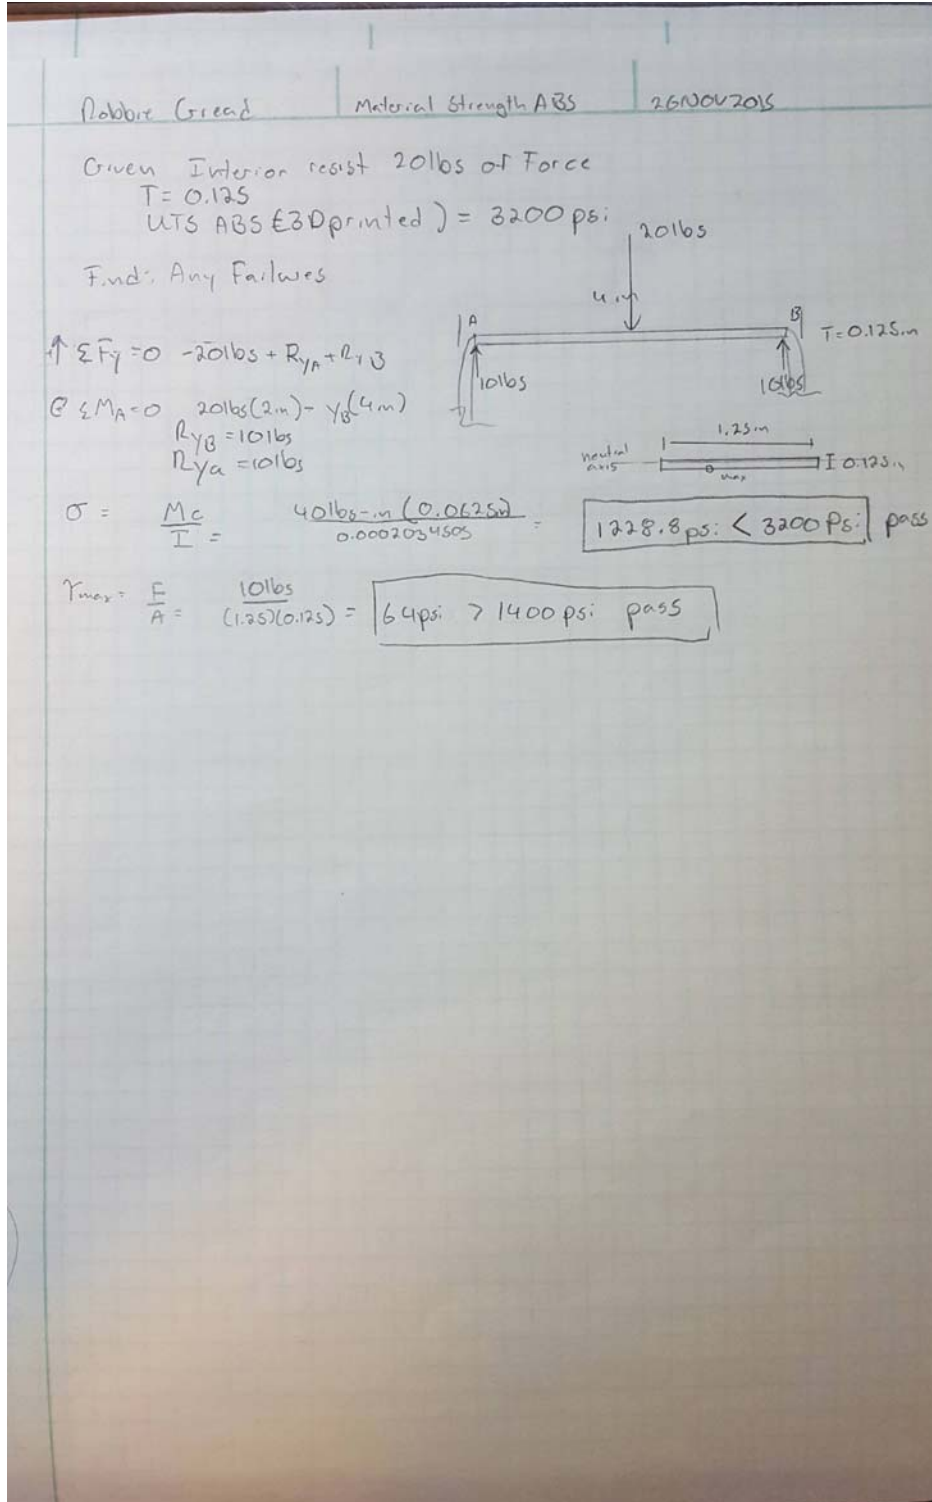 Robbie Gread
Material Strength ABS
26NOV2015
Given Interior resist 20lbs of Force
T= 0.125
UTS ABS (3D printed) = 3200 psi
Find: Any Failures
20lbs
4in
A
B
T=0.125in
10lbs
10lbs
↑ ΣFy =0 -20lbs + RyA + RyB
ΣMA=0 20lbs(2in) - yB(4in)
RyB =10lbs
Rya =10lbs
1.25in
neutral
axis
I 0.125in
max
σ = Mc/I = 40lbs-in (0.0625in)/0.0002034505 = 1228.8psi < 3200 Psi pass
τmax = F/A = 10lbs/(1.25)(0.125) = 64psi > 1400 psi pass